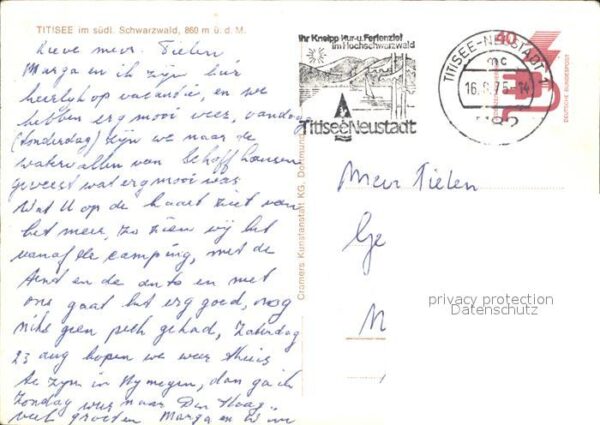 TITISEE im südl. Schwarzwald, 860 m ü. d. M.
Lieve mevr. Tielen
Marga en ik zijn hier
heerlijk op vacantie, en we
hebben erg mooi weer, vandaag
(donderdag) zijn we naar de
watervallen van Schaffhausen
geweest wat erg mooi was
Wat U op de kaart ziet van
het meer, zo zien wij het
vanaf de camping, met de
tent en de auto en met
ons gaat het erg goed, nog
niks geen pech gehad, Zaterdag
23 aug hopen we weer thuis
te zijn in Nymegen, dan ga ik
Zondag weer naar Den Haag
veel groeten Marga en
Cramers Kunstanstalt KG, Dortmund
Ihr Kneipp Kur- u. Ferienziel
im Hochschwarzwald
Titisee Neustadt
TITISEE-NEUSTADT 1
mc
16.8.75-14
7182
40
DEUTSCHE BUNDESPOST
Mevr Tielen
Ge
N
privacy protection
Datenschutz